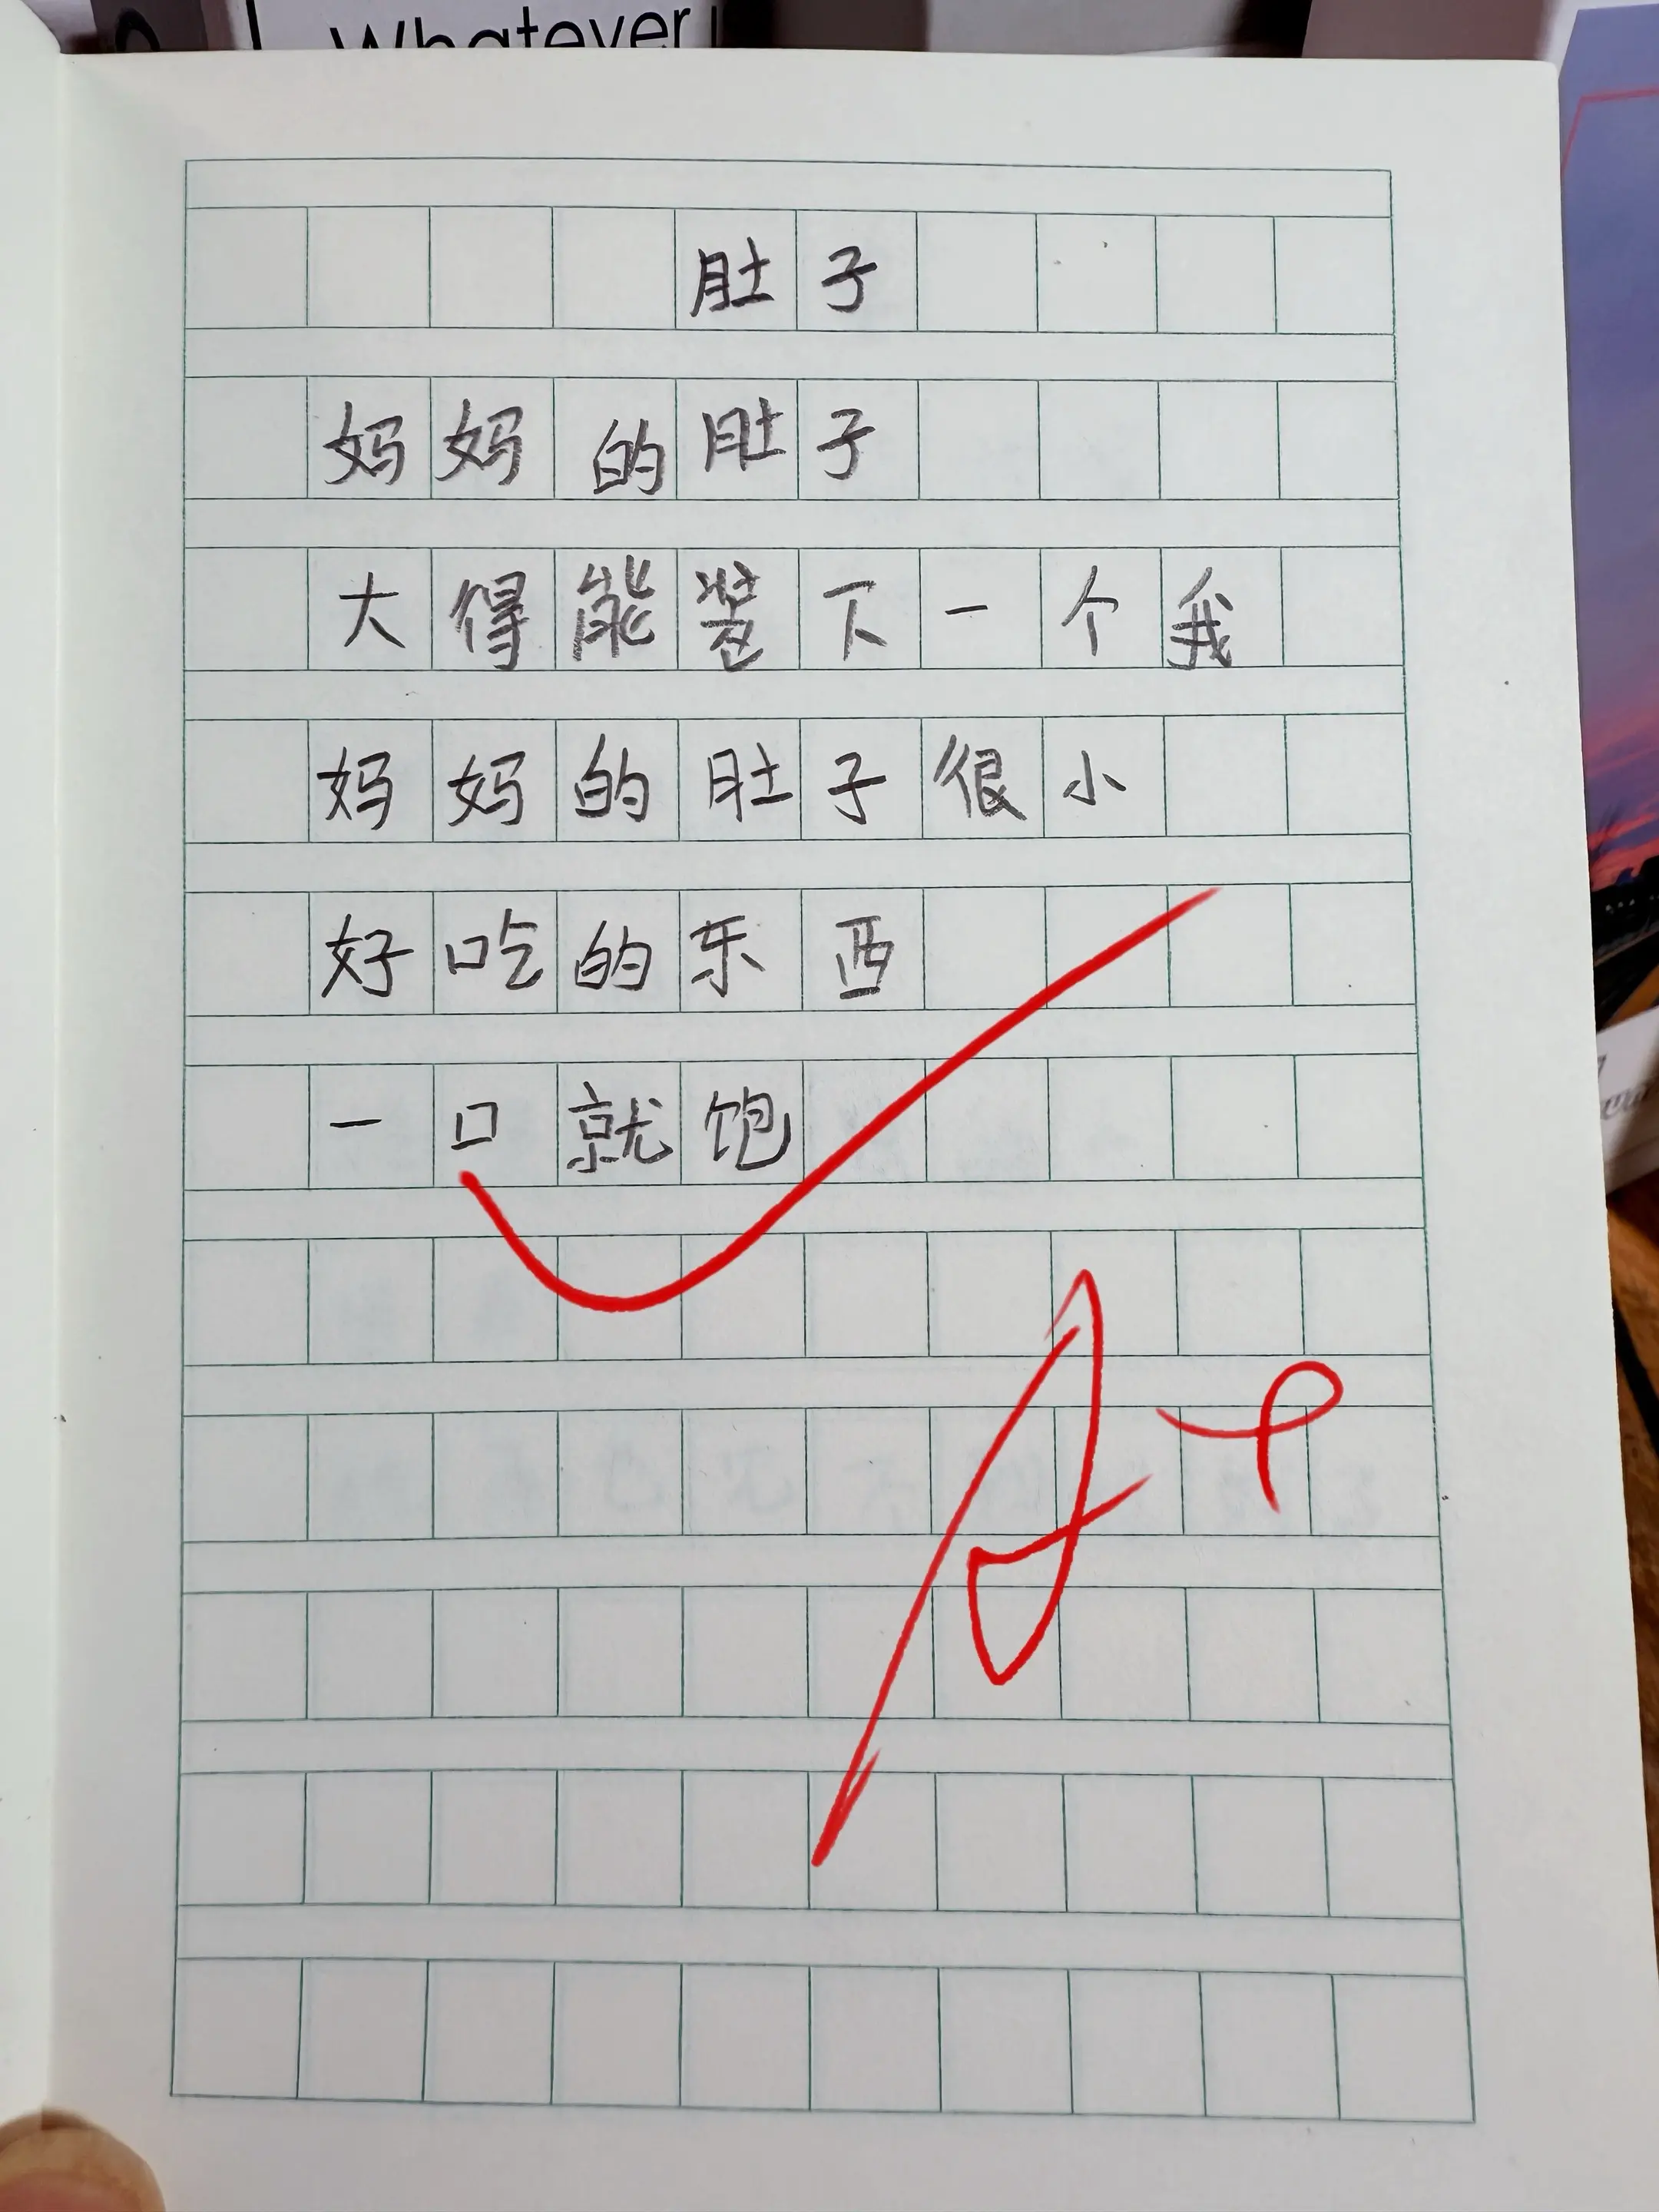 Whatever
肚子
妈妈的肚子
大得能装下一个我
妈妈的肚子很小
好吃的东西
一口就饱
A+